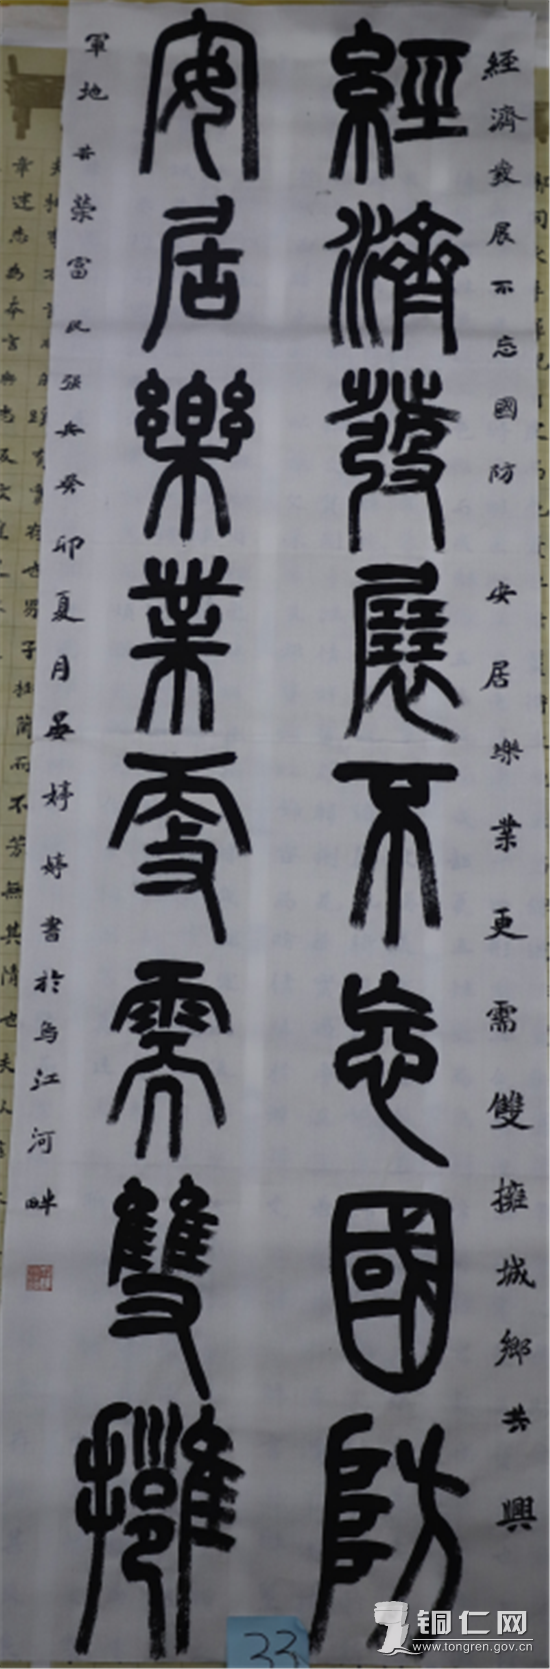 經濟發展不忘國防安居樂業更需雙擁城鄉共興
經濟發展不忘國防
安居樂業更需雙擁
軍地共榮富民強兵癸卯夏月晏婷婷書於烏江河畔
33
铜仁网
www.tongren.gov.cn